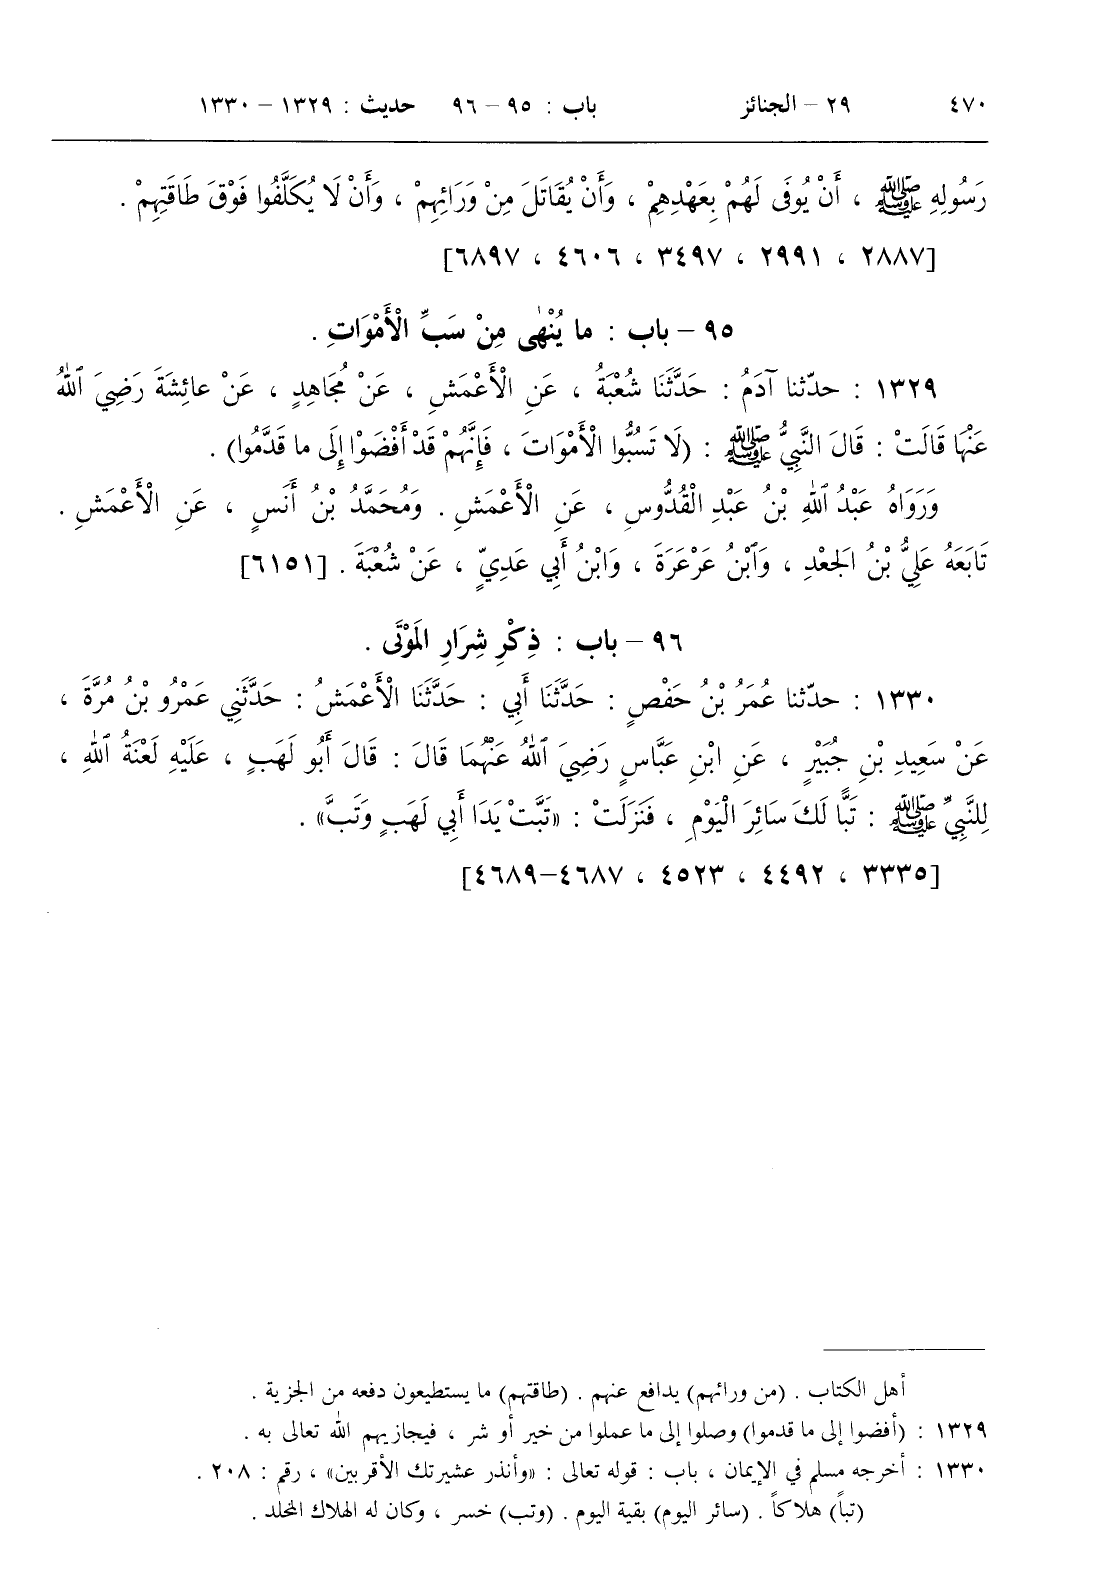 ٤٧٠ ٢٩ – الجنائز باب : ٩٥ – ٩٦ حديث : ١٣٢٩ – ١٣٣٠
رَسُولِهِ ﷺ ، أَنْ يُوفَى لَهُمْ بِعَهْدِهِمْ ، وَأَنْ يُقَاتَلَ مِنْ وَرَائِهِمْ ، وَأَنْ لَا يُكَلَّفُوا فَوْقَ طَاقَتِهِمْ .
[٢٨٨٧ ، ٢٩٩١ ، ٣٤٩٧ ، ٤٦٠٦ ، ٦٨٩٧]
٩٥ – باب : ما يُنْهٰى مِنْ سَبِّ الْأَمْوَاتِ .
١٣٢٩ : حدّثنا آدَمُ : حَدَّثَنَا شُعْبَةُ ، عَنِ الْأَعْمَشِ ، عَنْ مُجَاهِدٍ ، عَنْ عائِشَةَ رَضِيَ ٱللهُ
عَنْهَا قَالَتْ : قَالَ النَّبِيُّ ﷺ : (لَا تَسُبُّوا الْأَمْوَاتَ ، فَإِنَّهُمْ قَدْ أَفْضَوْا إِلَى ما قَدَّمُوا) .
وَرَوَاهُ عَبْدُ ٱللهِ بْنُ عَبْدِ الْقُدُّوسِ ، عَنِ الْأَعْمَشِ . وَمُحَمَّدُ بْنُ أَنَسٍ ، عَنِ الْأَعْمَشِ .
تَابَعَهُ عَلِيُّ بْنُ الجَعْدِ ، وَٱبْنُ عَرْعَرَةَ ، وَابْنُ أَبِي عَدِيٍّ ، عَنْ شُعْبَةَ . [٦١٥١]
٩٦ – باب : ذِكْرِ شِرَارِ المَوْتَى .
١٣٣٠ : حدّثنا عُمَرُ بْنُ حَفْصٍ : حَدَّثَنَا أَبِي : حَدَّثَنَا الْأَعْمَشُ : حَدَّثَنِي عَمْرُو بْنُ مُرَّةَ ،
عَنْ سَعِيدِ بْنِ جُبَيْرٍ ، عَنِ ابْنِ عَبَّاسٍ رَضِيَ ٱللهُ عَنْهُمَا قَالَ : قَالَ أَبُو لَهَبٍ ، عَلَيْهِ لَعْنَةُ ٱللهِ ،
لِلنَّبِيِّ ﷺ : تَبًّا لَكَ سَائِرَ الْيَوْمِ ، فَنَزَلَتْ : «تَبَّتْ يَدَا أَبِي لَهَبٍ وَتَبَّ» .
[٣٣٣٥ ، ٤٤٩٢ ، ٤٥٢٣ ، ٤٦٨٧–٤٦٨٩]
أهل الكتاب . (من ورائهم) يدافع عنهم . (طاقتهم) ما يستطيعون دفعه من الجزية .
١٣٢٩ : (أفضوا إلى ما قدموا) وصلوا إلى ما عملوا من خير أو شر ، فيجازيهم الله تعالى به .
١٣٣٠ : أخرجه مسلم في الإيمان ، باب : قوله تعالى : «وأنذر عشيرتك الأقربين» ، رقم : ٢٠٨ .
(تباً) هلاكاً . (سائر اليوم) بقية اليوم . (وتب) خسر ، وكان له الهلاك المخلد .